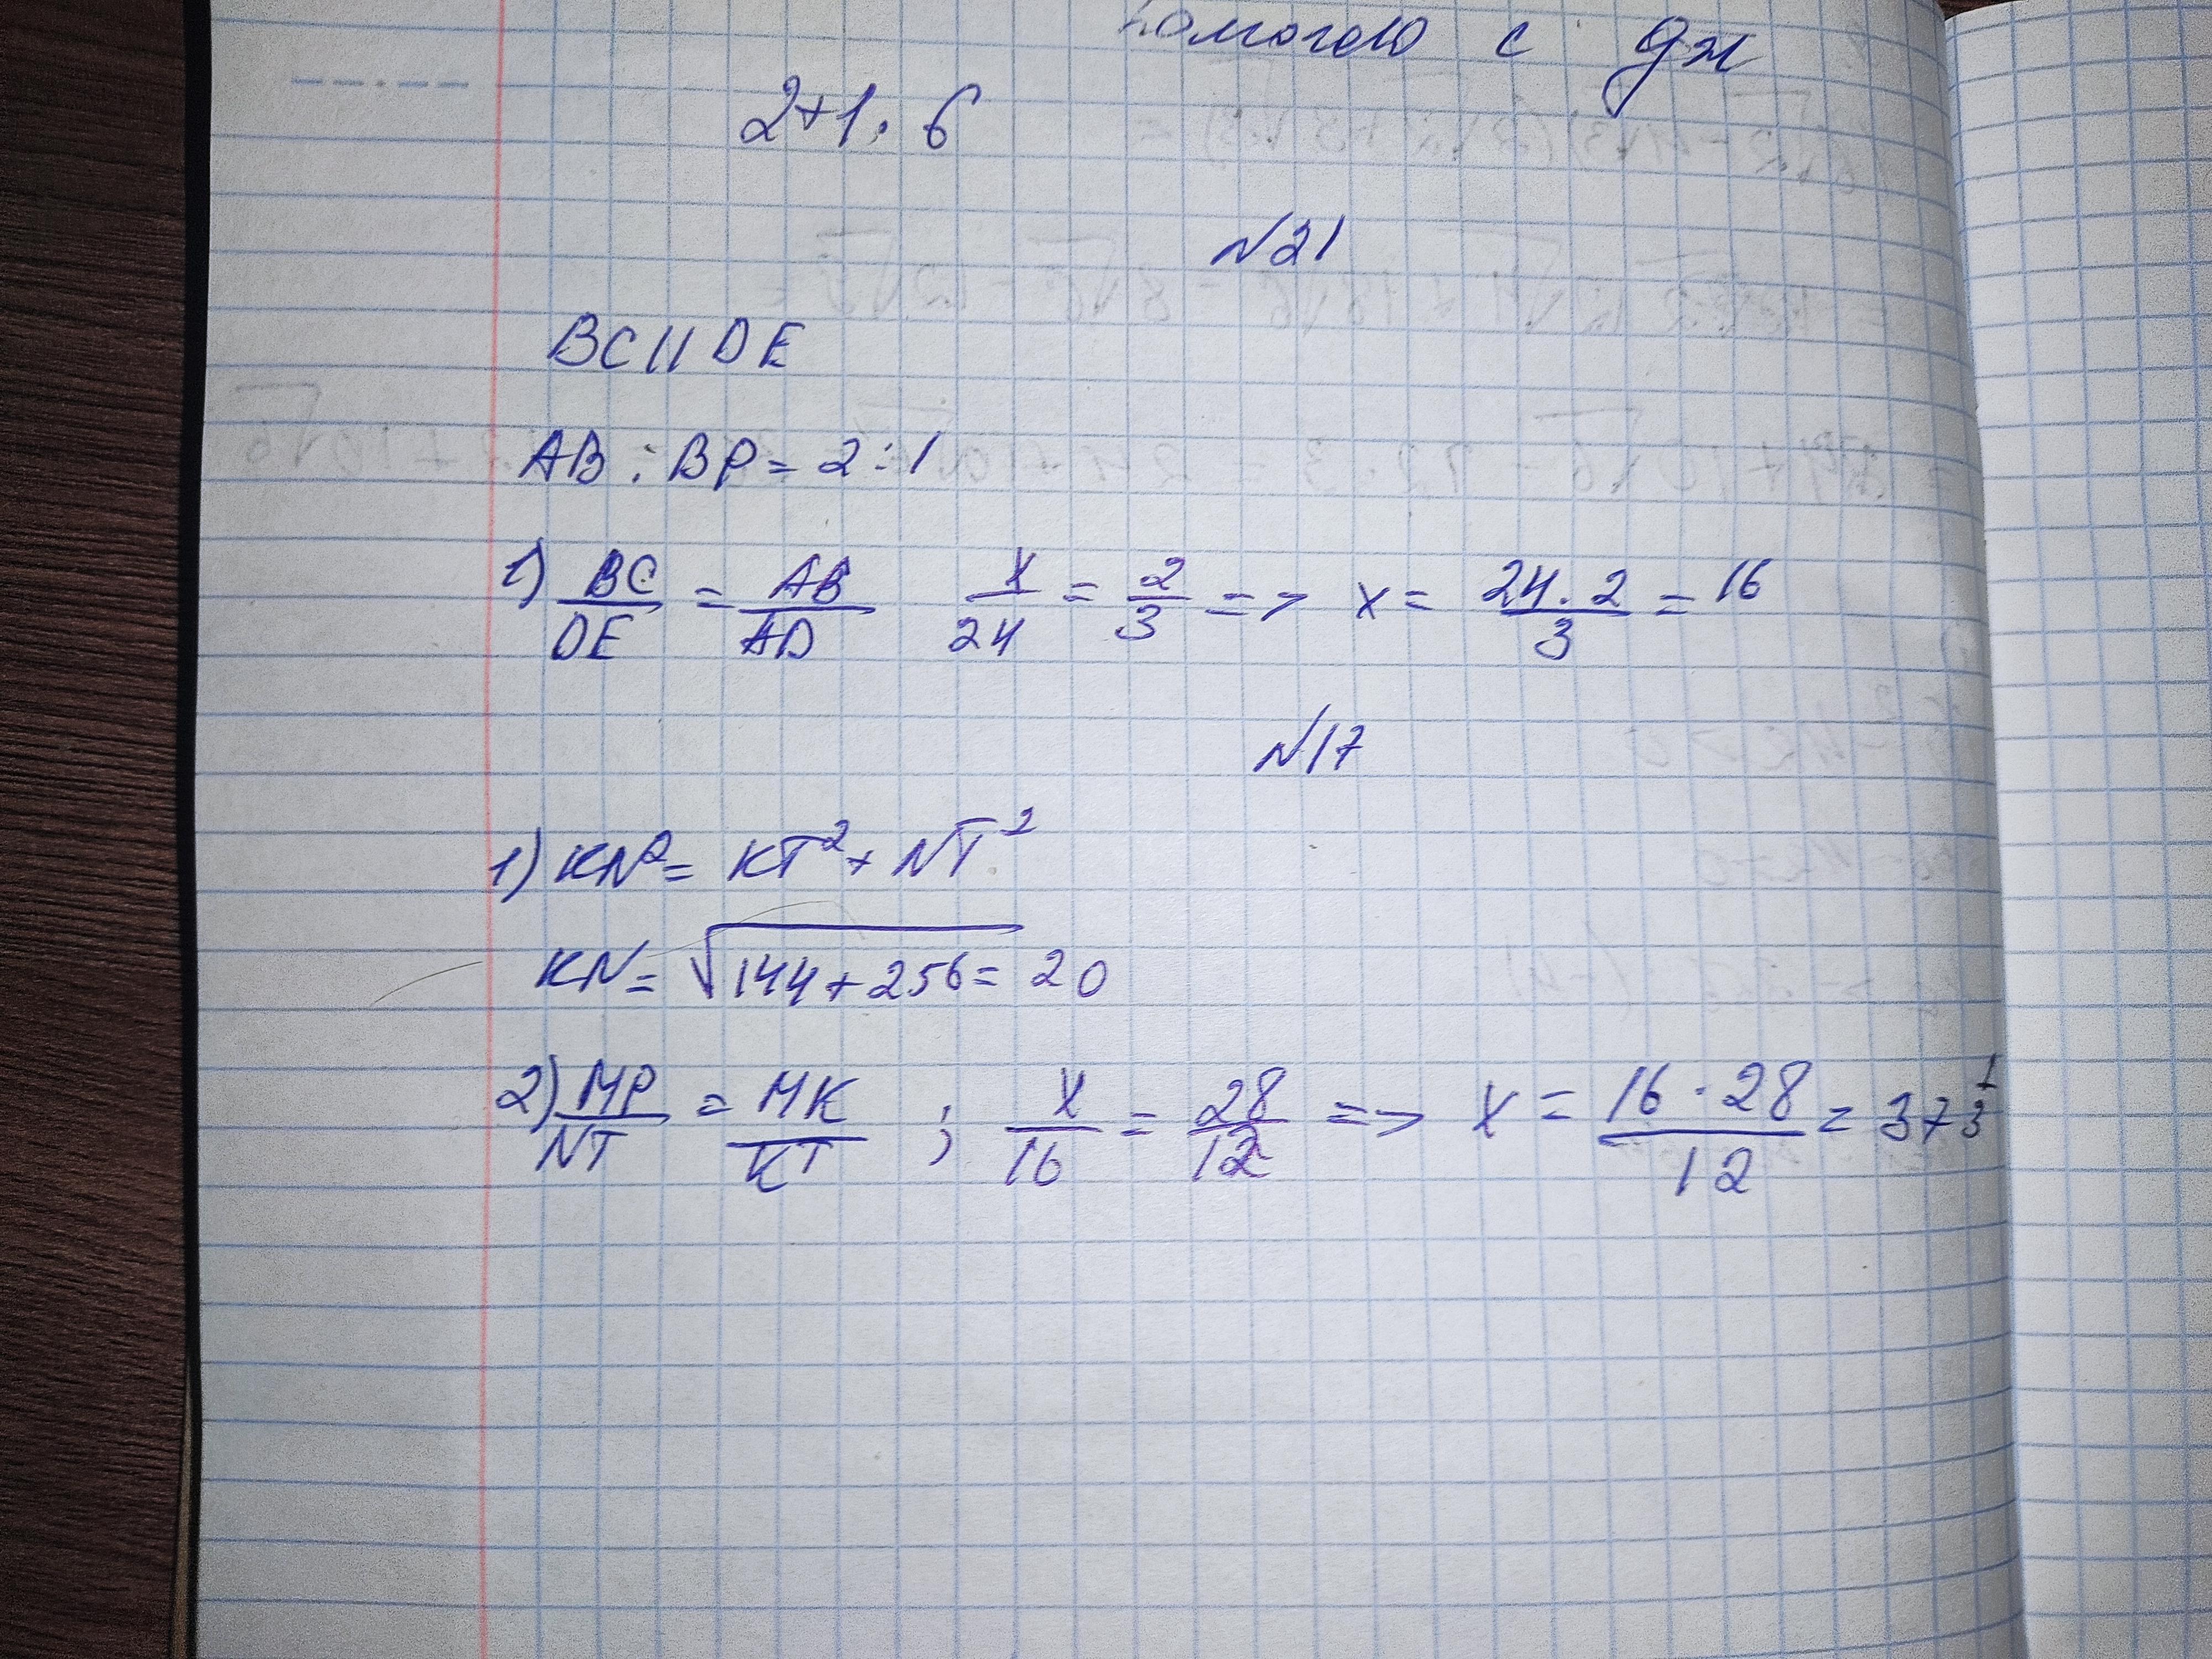 помогаю с дж
2+1.6
N21
BC || DE
AB : BP = 2:1
1) BC/DE = AB/AD x/24 = 2/3 => x = 24.2/3 = 16
N17
1) KN² = KT² + NT²
KN = √144+256 = 20
2) MP/NT = MK/KT ; x/16 = 28/12 => x = 16·28/12 = 37 1/3